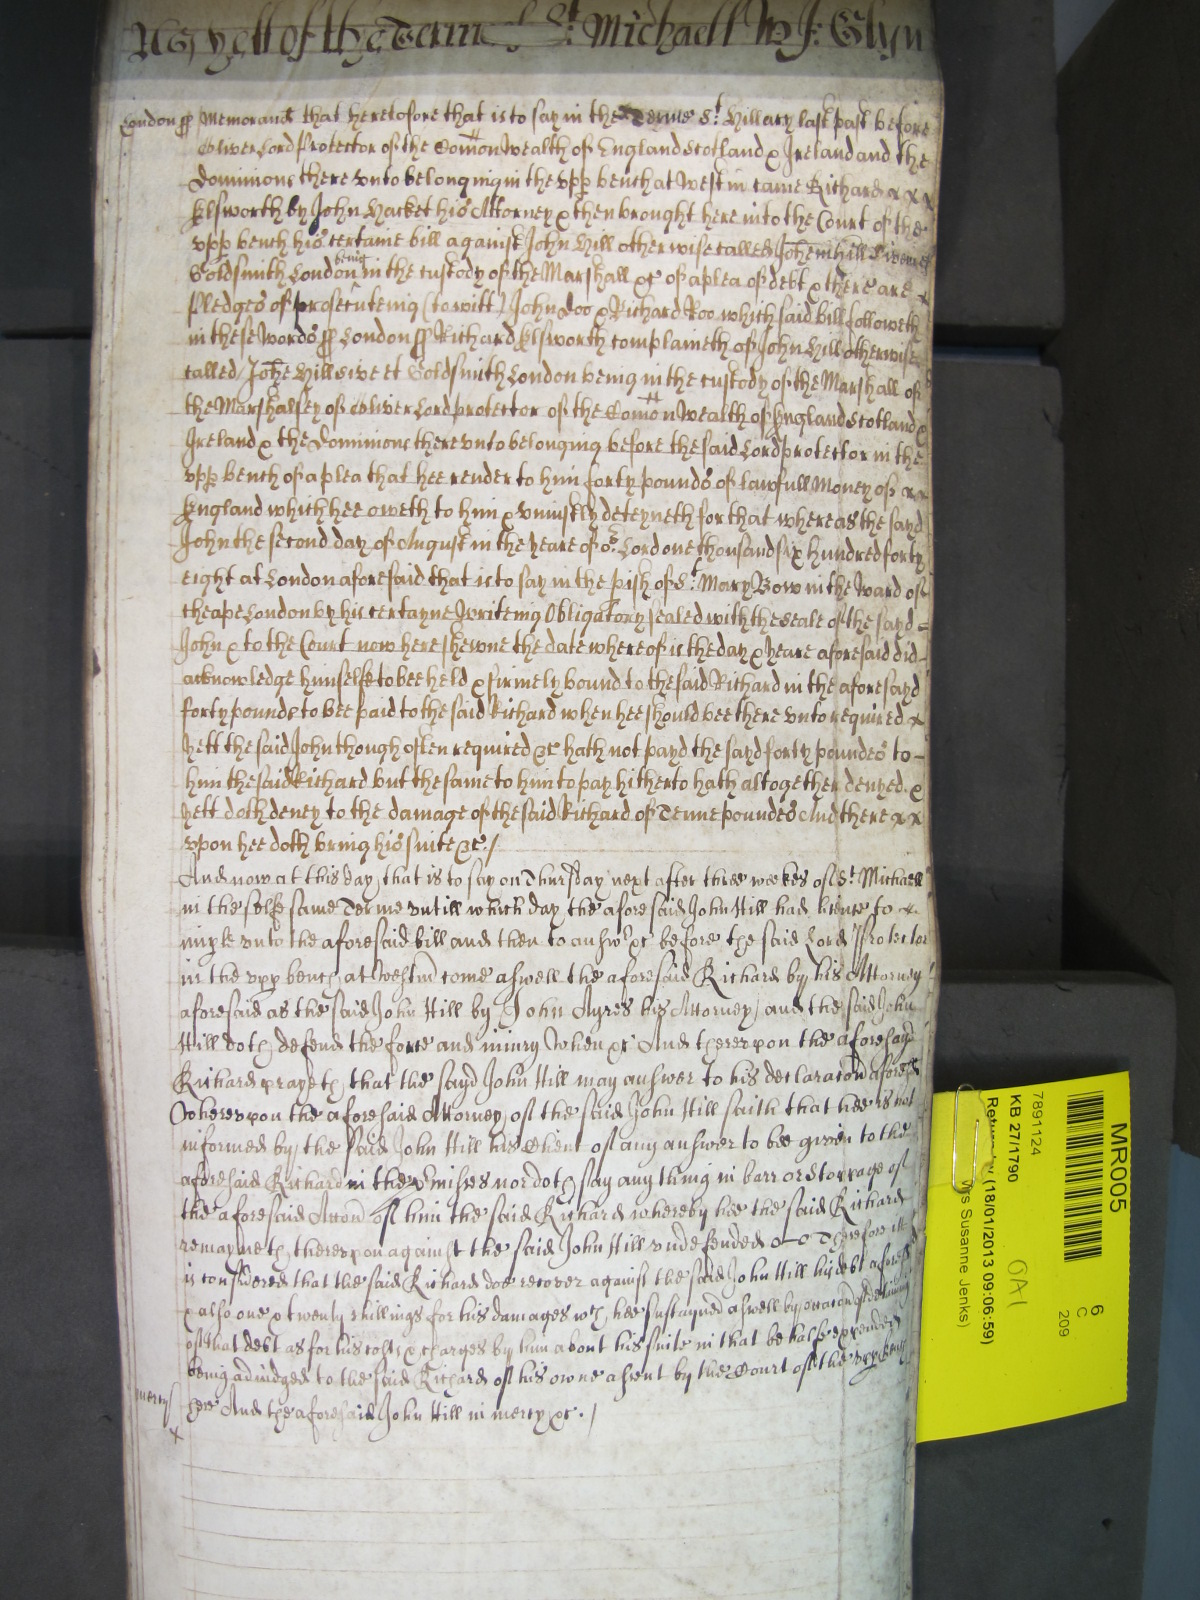 As yett of the Terme of St. Michaell W J: Glyn
London ss Memorand that heretofore that is to say in the Terme St. Hillary last past before
Oliver Lord Protector of the Comon Wealth of England Scotland & Ireland and the
Dominions there unto belonging in the upp bench at Westm came Richard x x x
Elsworth by John Hacket his Attorney & then brought here into the Court of the
upp bench his certaine bill against John Hill otherwise called Johem Hill
Goldsmith London being in the custody of the Marshall &c of a plea of debt & there are x
Pledges of prosecuteing (to witt) John Doo & Richard Roo which said bill followeth
in these words ss London ss Richard Elsworth complaineth of John Hill otherwise
called Johe Hill Cive et Goldsmith London being in the custody of the Marshall of
the Marshalsey of Oliver Lord protector of the Comon Wealth of England Scotland &
Ireland & the Dominions there unto belonging before the said Lord protector in the
upp bench of a plea that hee render to him forty pounds of lawfull Money of x x
England which hee oweth to him & uniustly deteyneth for that whereas the sayd
John the second day of August in the yeare of or Lord one thousand six hundred forty
eight at London aforesaid that is to say in the pish of St. Mary Bow in the Ward of
Cheape London by his certayne writeing Obligatory sealed with the Seale of the sayd =
John & to the Court now here shewne the date whereof is the day & yeare aforesaid did -
acknowledge himselfe to bee held & firmely bound to the said Richard in the aforesayd
forty pounds to bee paid to the said Richard when hee should bee there unto required x
Yett the said John though often required &c hath not payd the sayd forty poundes to -
him the said Richard but the same to him to pay hitherto hath altogether denyed &
yett doth deney to the damage of the said Richard of Tenne poundes And there x x
upon hee doth bring his suite &c. /
And now at this day that is to say on Thursday next after three weekes of St. Michaell
in the selfe same Terme untill which day the aforesaid John Hill had licence to x
imple unto the aforesaid bill and then to answr &c before the said Lord Protector
in the upp bench at Westm come aswell the aforesaid Richard by his Attorney
aforesaid as the said John Hill by John Ayres his Attorney and the said John
Hill doth defend the force and iniury When &c And thereupon the aforesayd
Richard prayeth that the sayd John Hill may answer to his declaracon aforesd
Whereupon the aforesaid Attorney of the said John Hill saith that hee is not
informed by the said John Hill his Client of any answer to bee given to the
aforesaid Richard in the pmisses nor doth say any thing in barr or Stoppage of
the aforesaid Accon of him the said Richard whereby hee the said Richard
remayneth thereupon against the said John Hill undefended Therefore itt
is considered that the said Richard doe recover against the said John Hill his debt aforesd
& also one & twenty shillings for his damages wch hee sustayned aswell by occacon of deteining
of that debt as for his costs & charges by him about his suite in that behalfe expended
being adiudged to the said Richard of his owne assent by the Court of the upp bench
mercy here And the aforesaid John Hill in mercy &c. /
x
MR005
6
C
209
7891124
KB 27/1790
OA1
(18/01/2013 09:06:59)
Mrs Susanne Jenks)